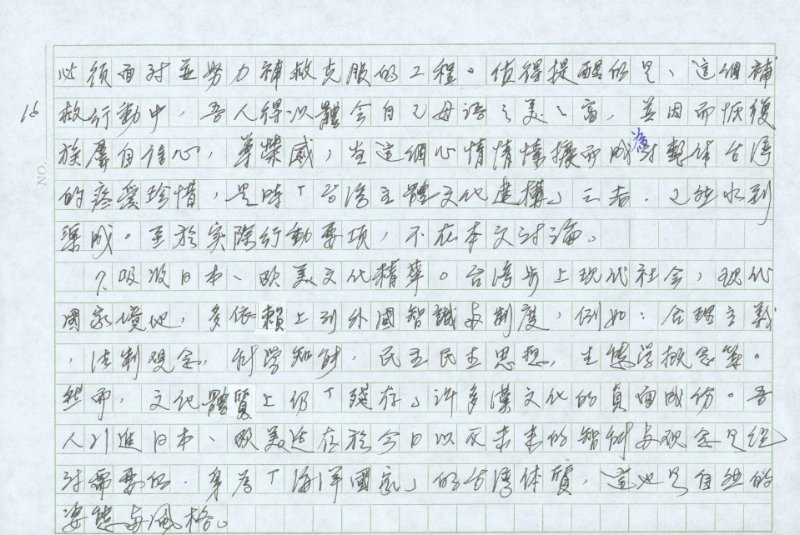 必須面對並努力補救克服的工程。值得提醒的是、這個補
16 救行動中，吾人得以體會自己母語之美之富，並因而恢復
族群自信心，尊榮感，當這個心情情懷擴而成為對整体台灣
的疼愛珍惜，是時「台湾主體文化建構」云者．已然水到
渠成。至於实際行動要項，不在本文討論。
7.吸收日本、歐美文化精華。台湾步上现代社会，现代
國家優化，多依賴上列外國智識与制度，例如：合理主義
，法制观念，科学知識，民主民主思想，生態学概念等。
然而，文化體質上仍「殘存」許多漢文化的負面成份。吾
人引進日本、歐美 於今日以及未来的智識与观念是絕
对需要的．身為「海洋國家」的台湾体質，這也是自然的
姿態与風格。
NO.